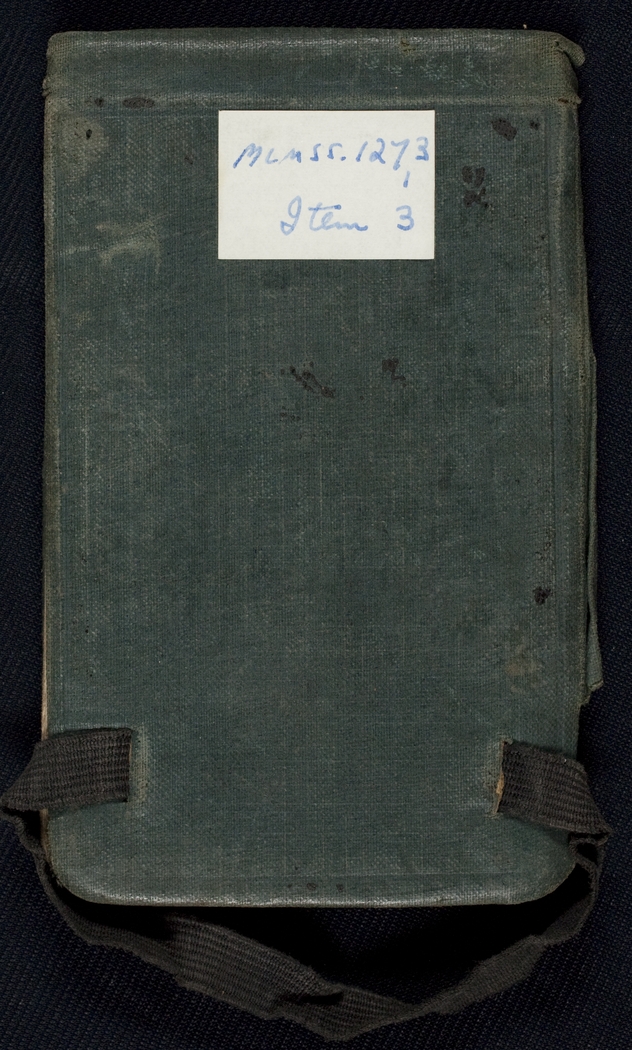 MLMSS.1273
Item 3